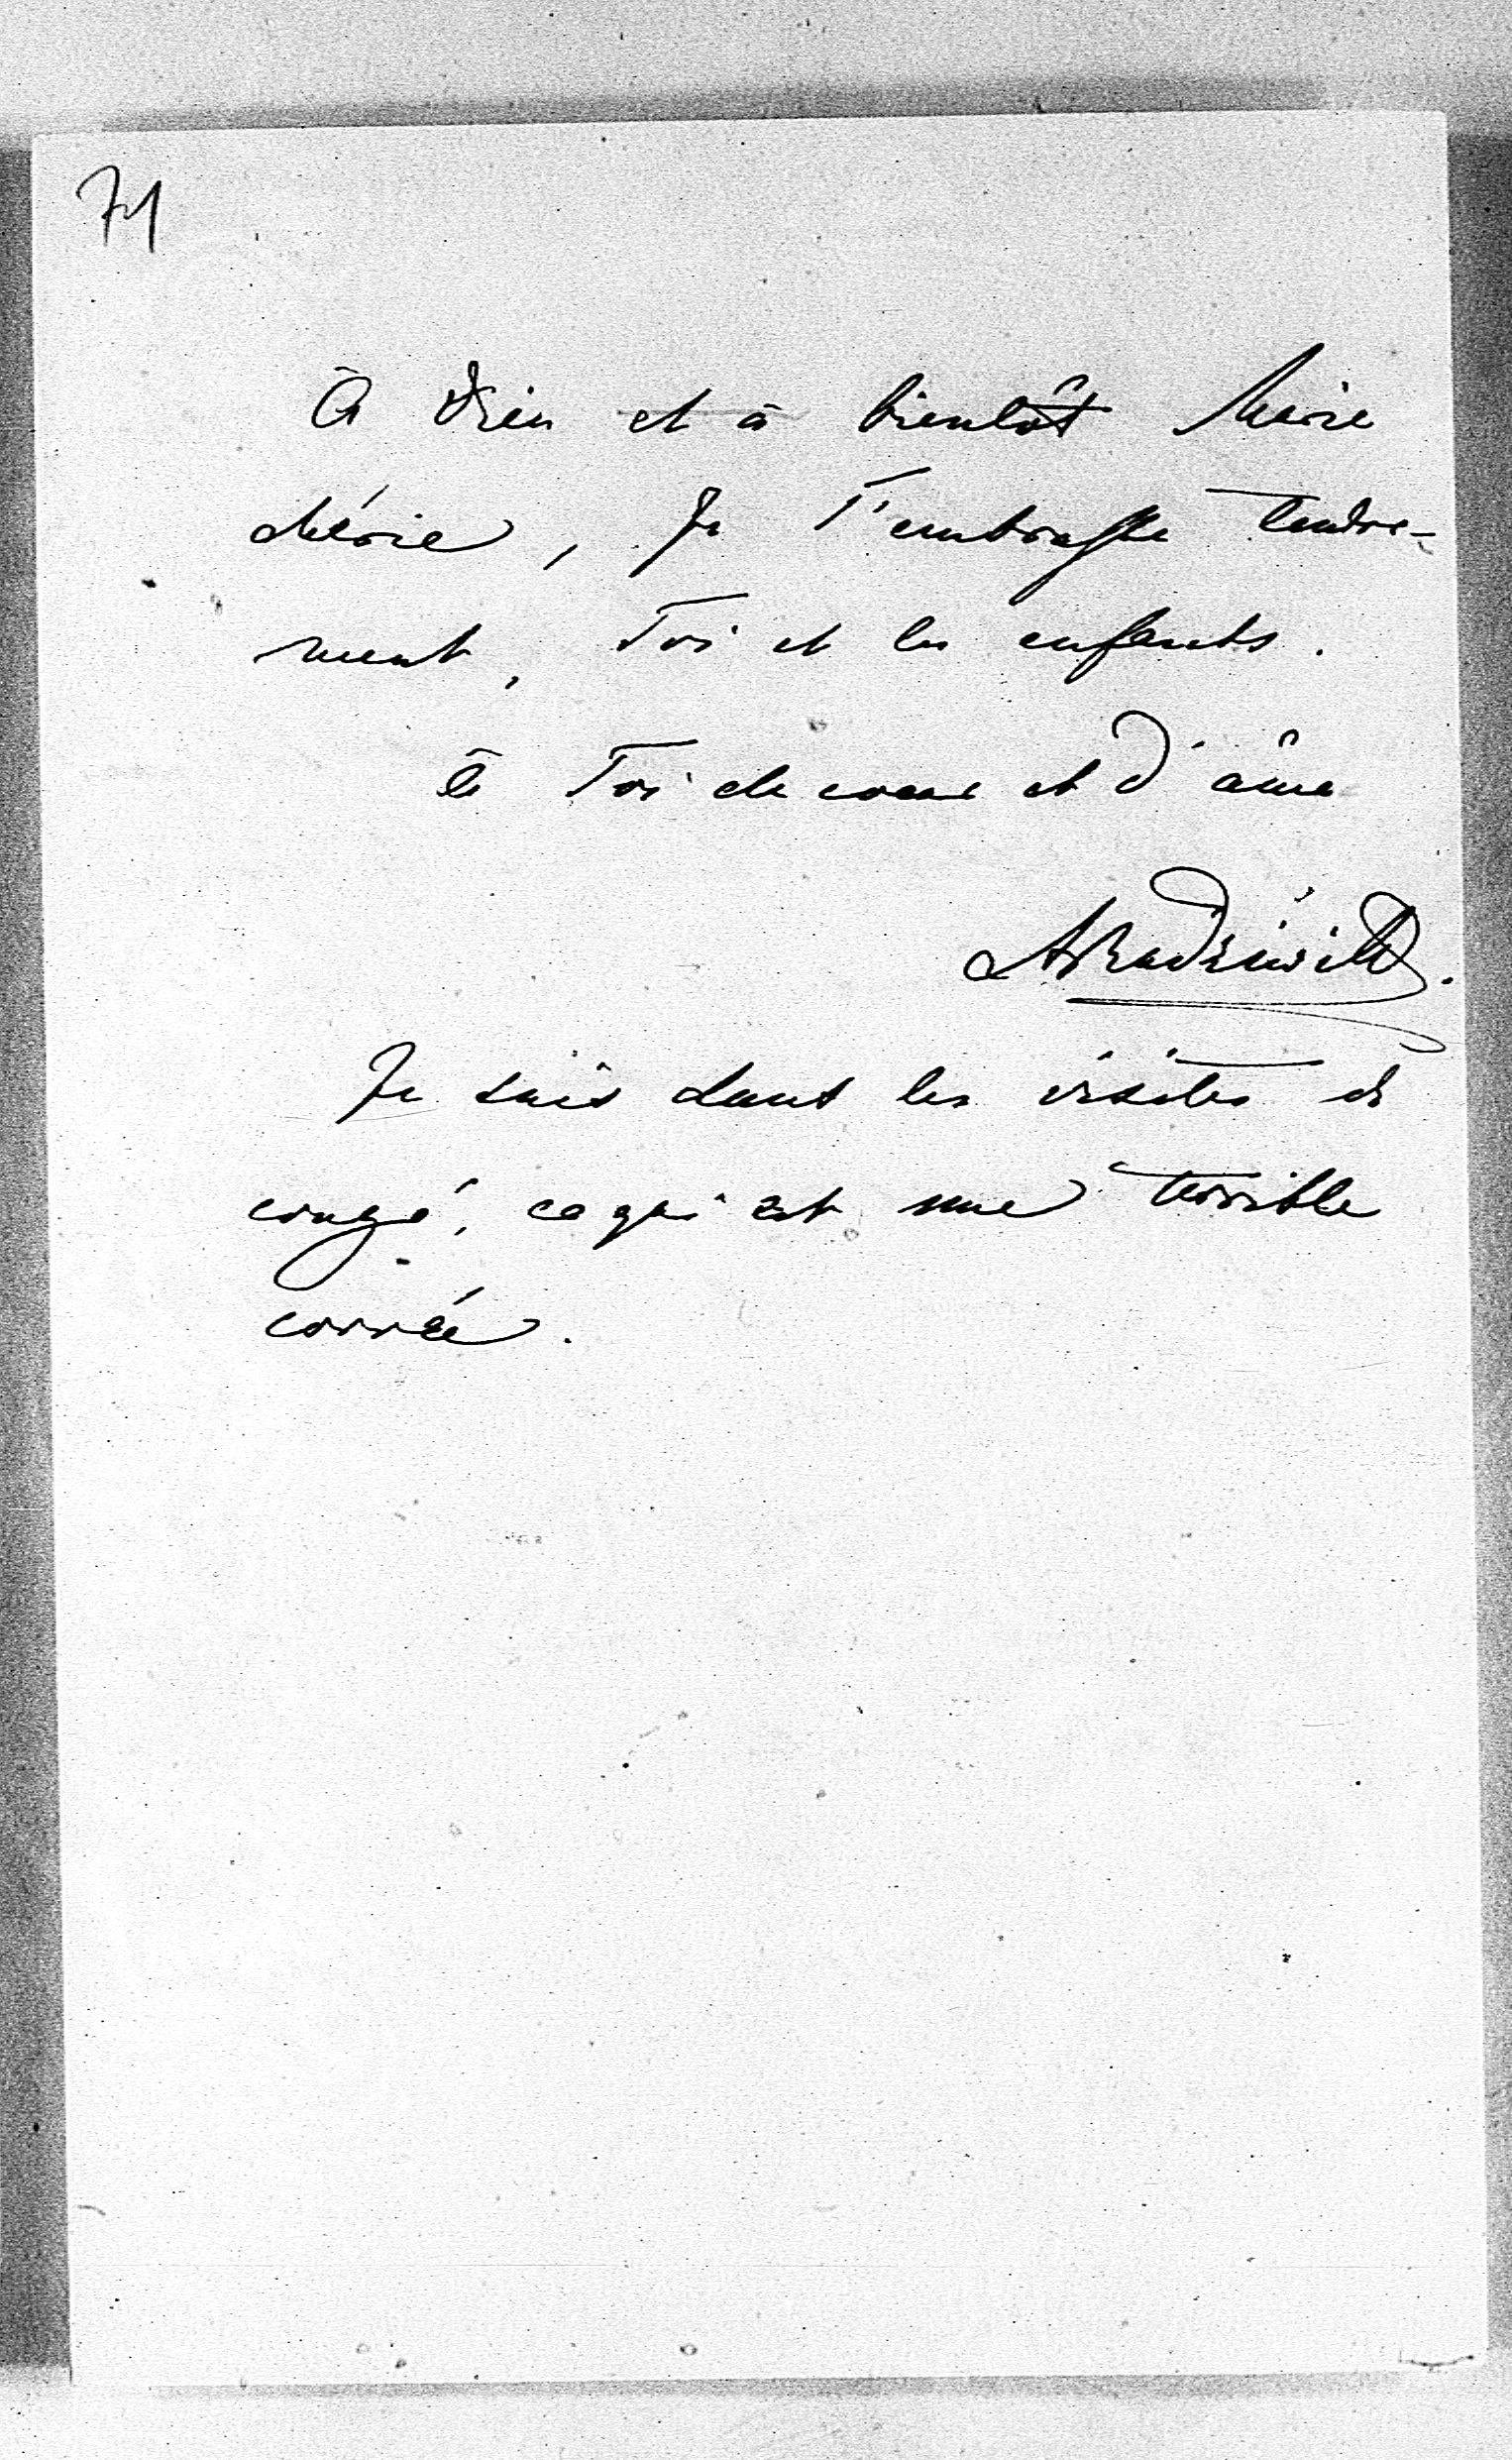 71
à Dieu et à bientôt Mère
chérie, Je T'embrasse tendre-
ment, Toi et les enfants.
à Toi de coeur et d'âme
ARadziwill.
Je suis dans les visites de
congé, ce qui est une terrible
corvée.